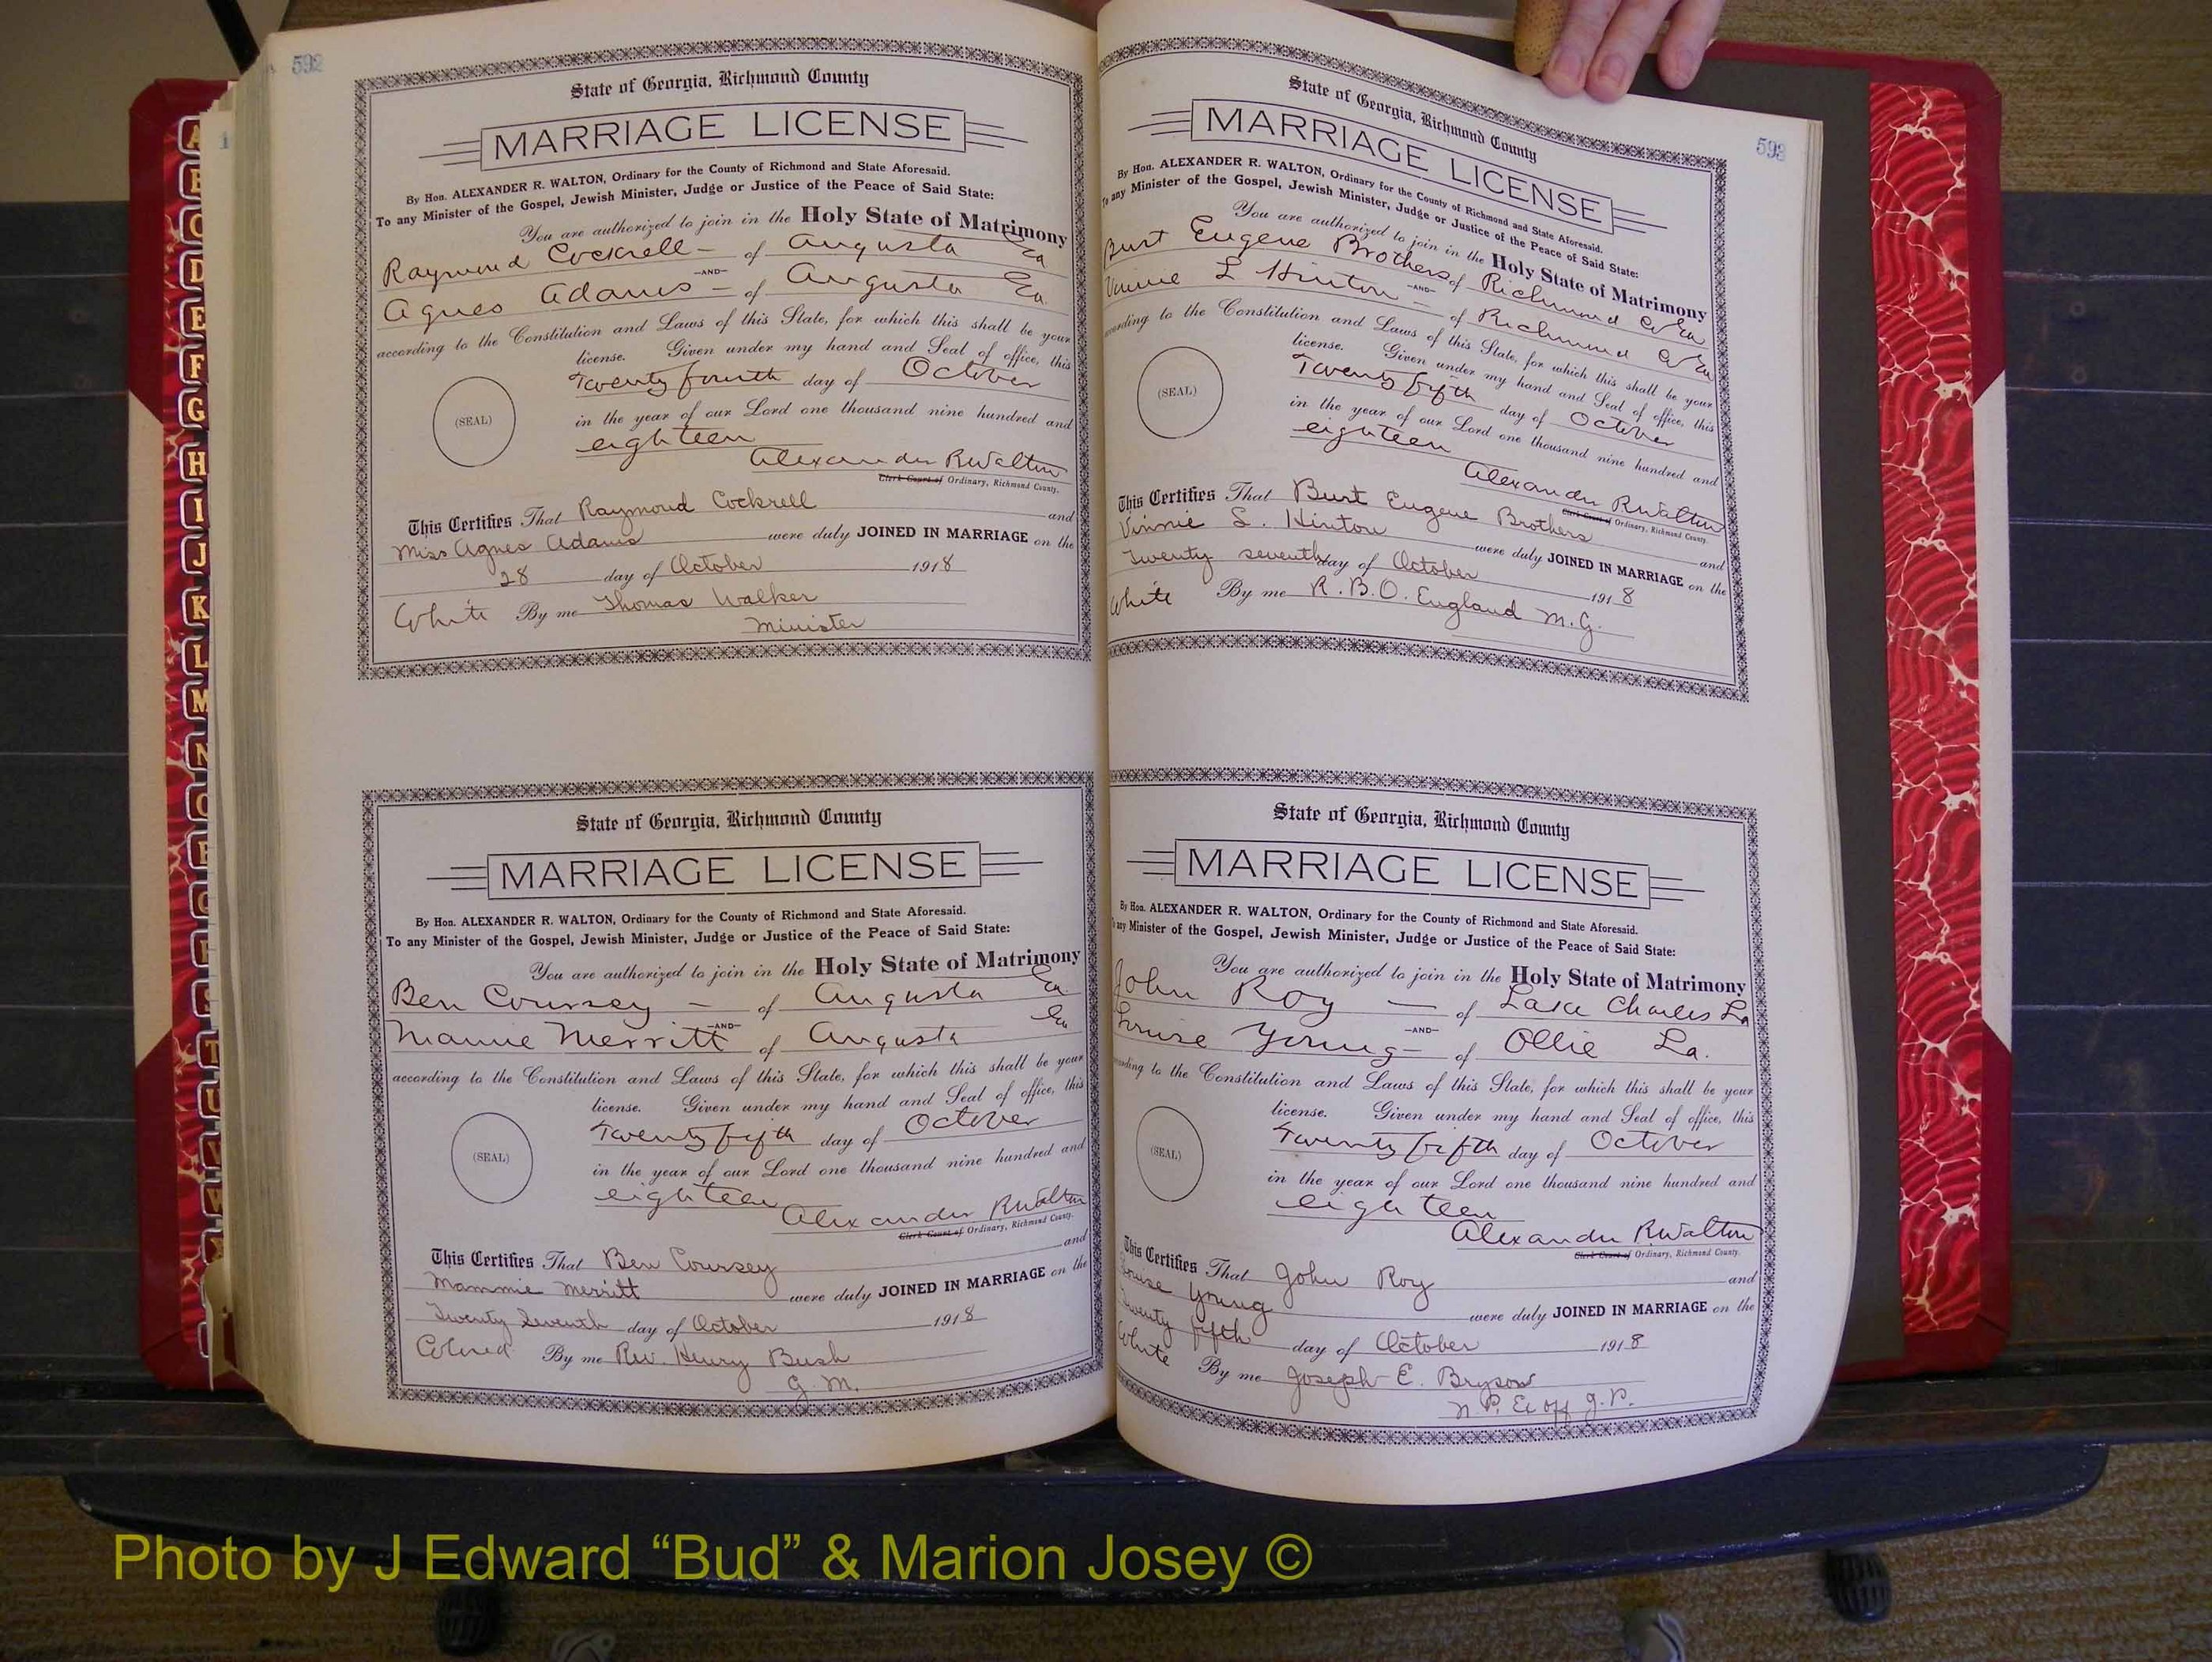 592
State of Georgia, Richmond County
MARRIAGE LICENSE
By Hon. ALEXANDER R. WALTON, Ordinary for the County of Richmond and State Aforesaid.
To any Minister of the Gospel, Jewish Minister, Judge or Justice of the Peace of Said State:
You are authorized to join in the Holy State of Matrimony
Raymond Cockrell — of Augusta Ga
—AND—
Agnes Adams — of Augusta Ga.
according to the Constitution and Laws of this State, for which this shall be your
license. Given under my hand and Seal of office, this
Twenty fourth day of October
(SEAL)
in the year of our Lord one thousand nine hundred and
eighteen
Alexander R Walton
Clerk Court of Ordinary, Richmond County.
This Certifies That Raymond Cockrell and
Miss Agnes Adams were duly JOINED IN MARRIAGE on the
28 day of October 1918
White By me Thomas Walker
Minister
State of Georgia, Richmond County
MARRIAGE LICENSE
By Hon. ALEXANDER R. WALTON, Ordinary for the County of Richmond and State Aforesaid.
To any Minister of the Gospel, Jewish Minister, Judge or Justice of the Peace of Said State:
You are authorized to join in the Holy State of Matrimony
Ben Coursey — of Augusta Ga.
—AND—
Mamie Merritt of Augusta Ga
according to the Constitution and Laws of this State, for which this shall be your
license. Given under my hand and Seal of office, this
Twenty fifth day of October
(SEAL)
in the year of our Lord one thousand nine hundred and
eighteen
Alexander R Walton
Clerk Court of Ordinary, Richmond County.
This Certifies That Ben Coursey and
Mammie Merritt were duly JOINED IN MARRIAGE on the
Twenty Seventh day of October 1918
Colored By me Rev. Henry Bush
G. M.
593
State of Georgia, Richmond County
MARRIAGE LICENSE
By Hon. ALEXANDER R. WALTON, Ordinary for the County of Richmond and State Aforesaid.
To any Minister of the Gospel, Jewish Minister, Judge or Justice of the Peace of Said State:
You are authorized to join in the Holy State of Matrimony
Burt Eugene Brothers of Richmond Co Ga
—AND—
Vinnie L Hinton — of Richmond Co Ga
according to the Constitution and Laws of this State, for which this shall be your
license. Given under my hand and Seal of office, this
Twenty fifth day of October
(SEAL)
in the year of our Lord one thousand nine hundred and
eighteen
Alexander R Walton
Clerk Court of Ordinary, Richmond County.
This Certifies That Burt Eugene Brothers and
Vinnie L. Hinton were duly JOINED IN MARRIAGE on the
Twenty seventh day of October 1918
White By me R. B. O. England M.G.
State of Georgia, Richmond County
MARRIAGE LICENSE
By Hon. ALEXANDER R. WALTON, Ordinary for the County of Richmond and State Aforesaid.
To any Minister of the Gospel, Jewish Minister, Judge or Justice of the Peace of Said State:
You are authorized to join in the Holy State of Matrimony
John Roy — of Lake Charles La
—AND—
Louise Young — of Ollie La.
according to the Constitution and Laws of this State, for which this shall be your
license. Given under my hand and Seal of office, this
Twenty fifth day of October
(SEAL)
in the year of our Lord one thousand nine hundred and
eighteen
Alexander R Walton
Clerk Court of Ordinary, Richmond County.
This Certifies That John Roy and
Louise Young were duly JOINED IN MARRIAGE on the
Twenty fifth day of October 1918
White By me Joseph E. Bryson
N. P. Ex off J. P.
A
B
C
D
E
F
G
H
I
J
K
L
M
N
O
P
Q
R
S
T
U
V
W
Photo by J Edward “Bud” & Marion Josey ©